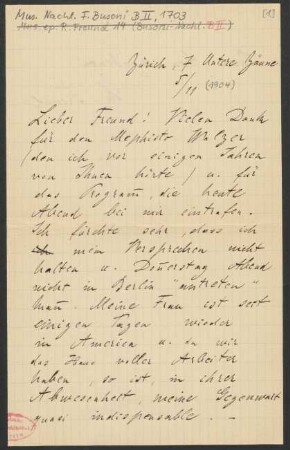 Mus. Nachl. F. Busoni B II, 1703
Mus. ep. R. Freund 14 (Busoni-Nachl. B II)
[1]
Zürich, 7 Untere Zäune
5/11 (1904)
Lieber Freund! Vielen Dank
für den Mephisto Walzer
(den ich vor einigen Jahren
von Ihnen hörte) u. für
das Program, die heute
Abend bei mir eintrafen.
Ich fürchte sehr, dass ich
mein Versprechen nicht
halten u. Donerstag Abend
nicht in Berlin "antreten"
kann. Meine Frau ist seit
einigen Tagen wieder
in America u. da wir
das Haus voller Arbeiter
haben, so ist, in ihrer
Abwesenheit, meine Gegenwart
quasi indispensable. —